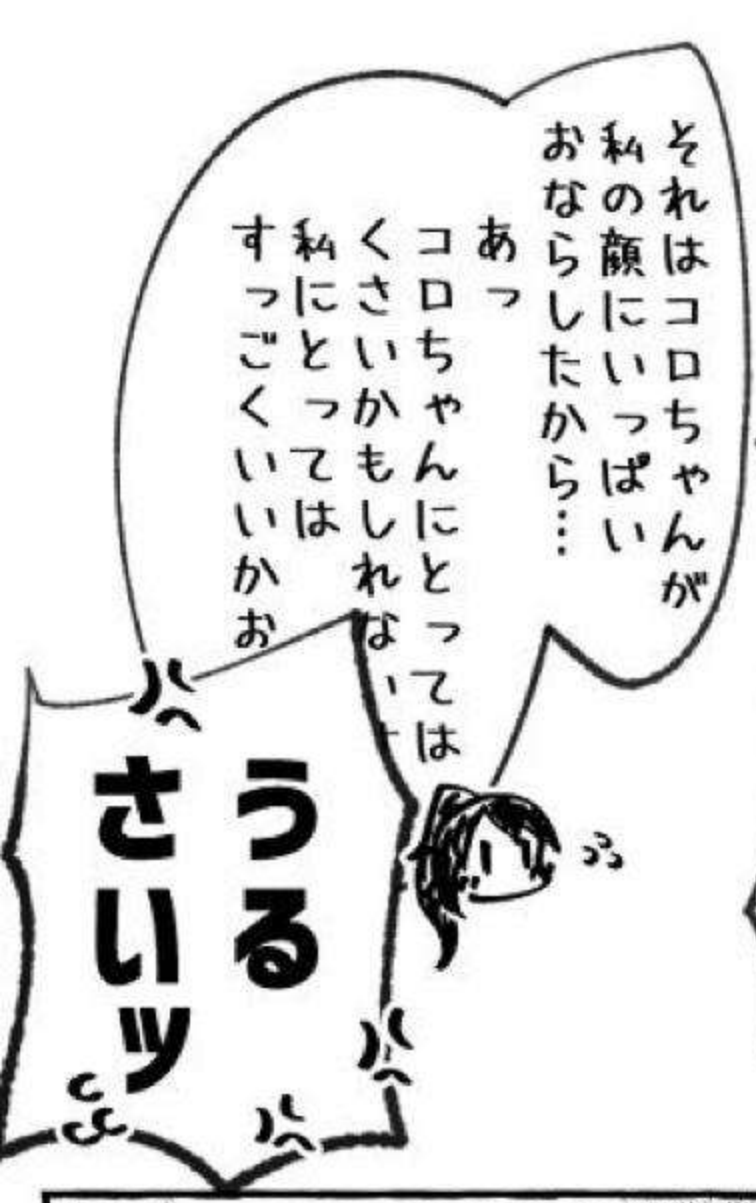 それはコロちゃんが
私の顔にいっぱい
おならしたから…
あっ
コロちゃんにとっては
くさいかもしれな
私にとっては
すっごくいいかお
うる
さいッ